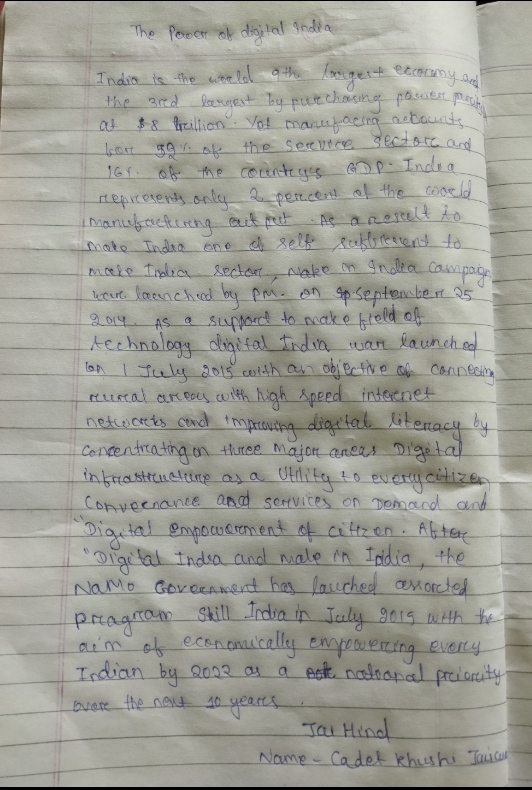 The Power of digital India
India is the world 9th largest economy and
the 3rd largest by purchasing power
at $8 trillion. Yet manufacing accounts
for 59% of the service sector and
16% of the country's GDP. India
represents only 2 percent of the world
manufacturing out put. As a result to
make India one of self sufficient to
make India sector, Make in India campagn
were launched by PM. on september 25
2014. As a support to make field of
technology digital India was launched
on 1 July 2015 with an objective of connecting
rural areas with high speed internet
networks and improving digital literacy by
concentrating on three major areas Digital
infrastructure as a Utility to every citizen
Convernance and services on Demand and
"Digital empowerment of citizen. After
"Digital India and make in India, the
NaMo Government has lauched assorted
pragram Skill India in July 2015 with the
aim of economically empowering every
Indian by 2022 as a national priority
over the next 10 years.
Jai Hind
Name - Cadet Khushi